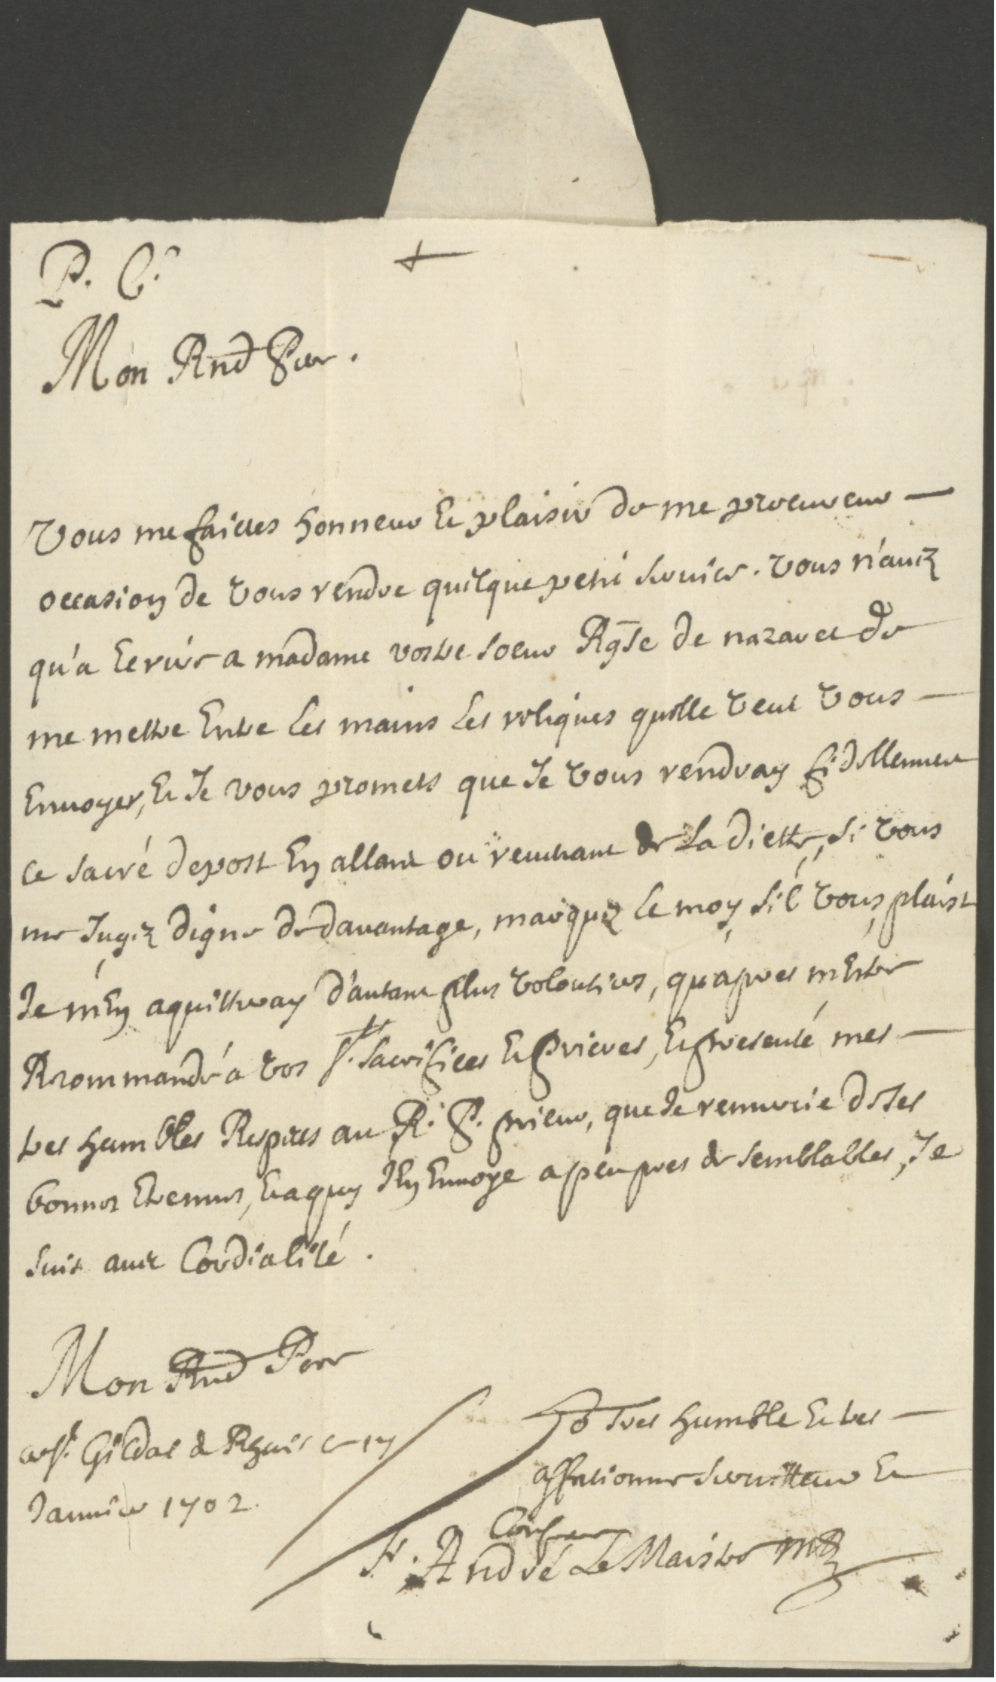 P. C.
Mon Rnd Pere.
Vous me faictes honneur Et plaisir de me procureur
occasion de vous rendre quelque petit service. vous n'avez
qu'a Ecrire a madame vostre soeur Rgse de nazaret de
me mettre Entre les mains les reliques quelle veut vous
Envoyer, Et Je vous promets que Je vous rendray fidellement
ce sacré depost En allant ou revenant de La diette, si vous
me Jugez digne de davantage, marquez Le moy s'il vous plaist
Je m'En aquitteray d'autant plus volontiers, qu'apres m'Estre
Recommandé a vos Sts sacrifices Et prieres, Et presenté mes
tres humbles Respects au R. P. prieur, que Je remercie de ses
bonnes Etrennes, Et a quy J'En Envoye a peu pres de semblables, Je
suis avec Cordialité.
Mon Rnd Pere
a St. Gildas de Rhuis ce 17
Janvier 1702.
Vo tres humble Et tres
affectionne Serviteur Et
Confrere
F. André Le Maistre MB